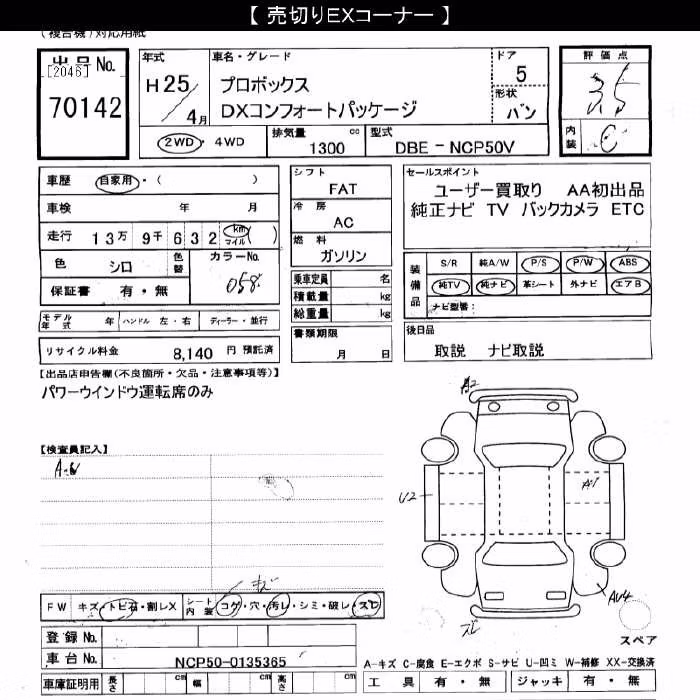 【 売切りEXコーナー 】
(複合機)対応用紙
出品 No.
[2046]
70142
年式
H 25 / 4 月
車名・グレード
プロボックス
DXコンフォートパッケージ
ドア
5
形状
バン
評価点
3.5
内装
C
2WD ・ 4WD
排気量
1300 cc
型式
DBE - NCP50V
車歴 自家用・( )
車検 年 月
走行 13万 9千 6 3 2 km マイル ( )
色 シロ
色替
カラーNo.
058
保証書 有・無
シフト
FAT
冷房
AC
燃料
ガソリン
乗車定員 名
積載量 kg
総重量 kg
書類期限
月 日
セールスポイント
ユーザー買取り AA初出品
純正ナビ TV バックカメラ ETC
装備品
S/R 純A/W P/S P/W ABS
純TV 純ナビ 革シート 外ナビ エアB
ナビ型番:
後日品
取説 ナビ取説
モデル年式 年 ハンドル 左・右 ディーラー・並行
リサイクル料金 8,140 円 預託済
【出品店申告欄(不良箇所・欠品・注意事項等)】
パワーウインドウ運転席のみ
【検査員記入】
A2
U2
A1
AU4
FW キズ・トビ石・割レX
シート内装 コゲ・穴・汚レ・シミ・破レ・スレ
キズ
登録 No.
車台 No. NCP50-0135365
車庫証明用 長さ cm 幅 cm 高さ cm
スペア
A-キズ C-腐食 E-エクボ S-サビ U-凹ミ W-補修 XX-交換済
工具 有・無 ジャッキ 有・無